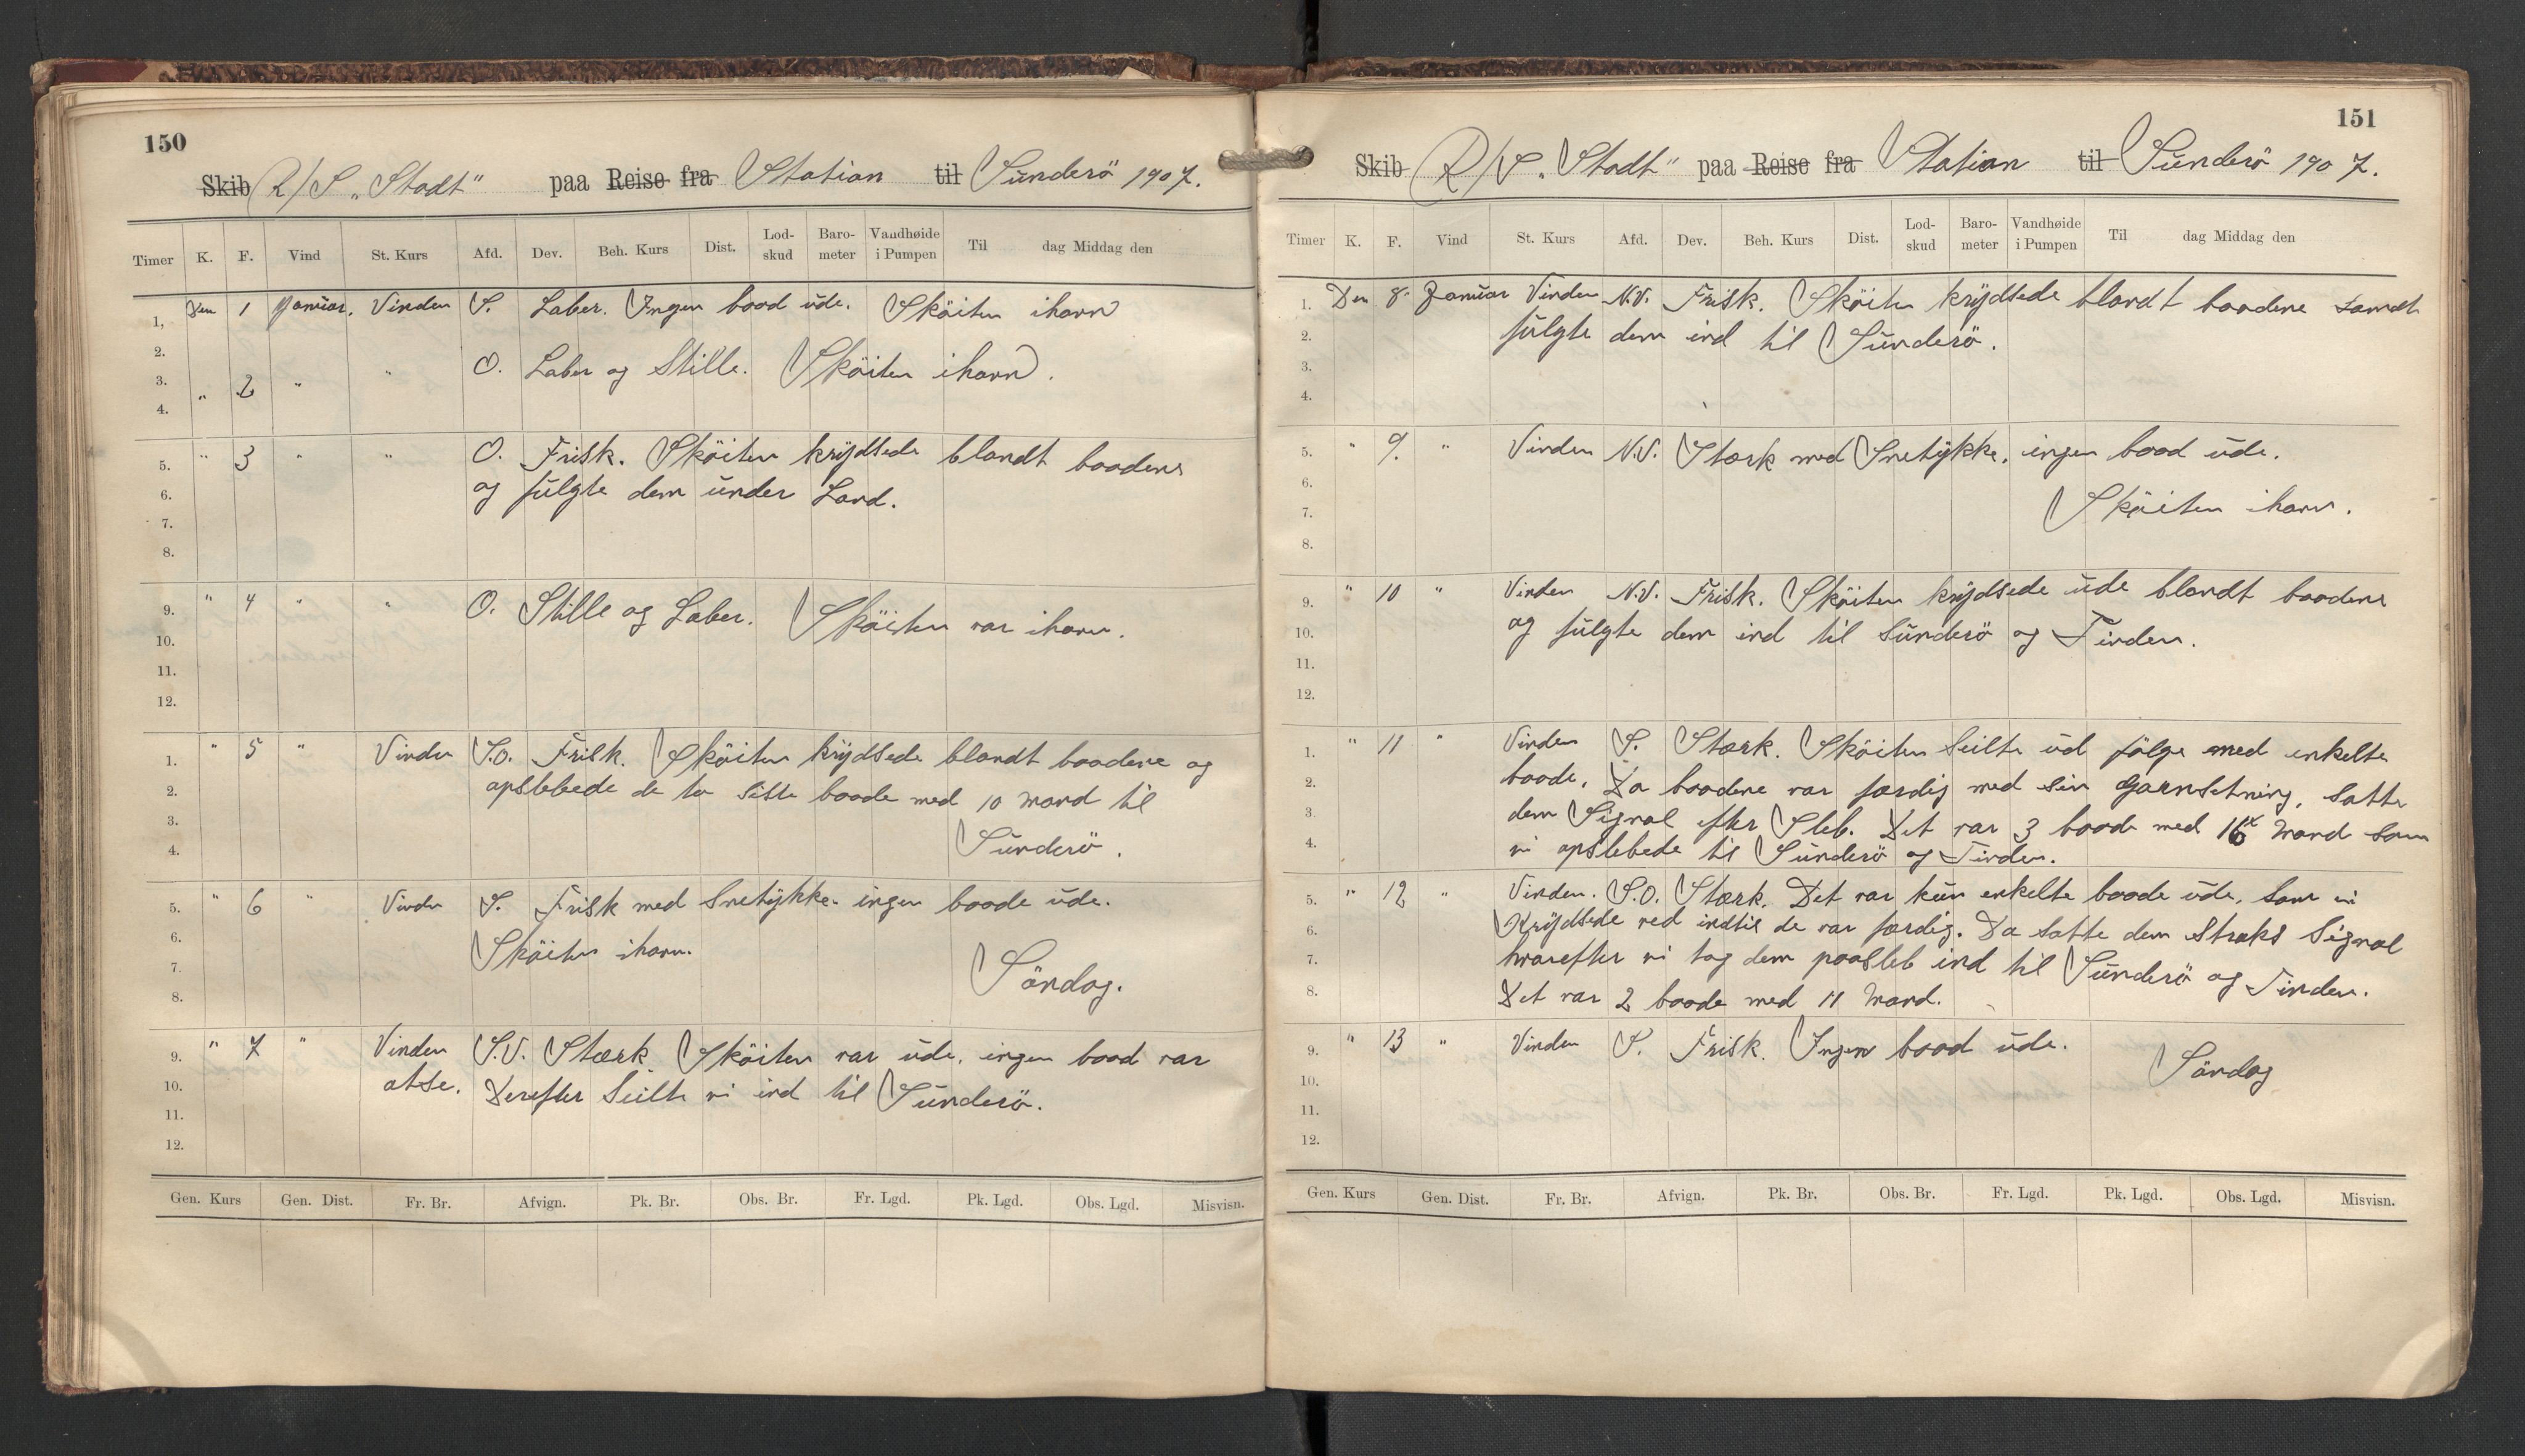 150
Skib R/S „Stadt" paa Reise fra Station til Sünderö 1907.
Timer K. F. Vind St. Kurs Afd. Dev. Beh. Kurs Dist. Lod-skud Baro-meter Vandhøide i Pumpen Til dag Middag den
1. Den 1 Januar. Vinden S. Laber. Ingen baad ude. Sköiten ihavn
2.
3. " 2 " " O. Laber og Stille. Sköiten ihavn.
4.
5. " 3 " " O. Frisk. Sköiten krÿdsede blandt baadene
6. og fülgte dem ünder Land.
7.
8.
9. " 4 " " O. Stille og Laber. Sköiten var ihavn.
10.
11.
12.
1. " 5 " Vinden S.O. Frisk. Sköiten krÿdsede blandt baadene og
2. opslebede de to sitste baade med 10 Mand til
3. Sünderö.
4.
5. " 6 " Vinden S. Frisk med Snetÿkke. ingen baade üde.
6. Sköiten ihavn.
7. Söndag.
8.
9. " 7 " Vinden S.V. Stærk. Sköiten var üde, ingen baad var
10. atse. Derefter Seilte vi ind til Sünderö.
11.
12.
Gen. Kurs Gen. Dist. Fr. Br. Afvign. Pk. Br. Obs. Br. Fr. Lgd. Pk. Lgd. Obs. Lgd. Misvisn.
151
Skib R/S „Stadt" paa Reise fra Station til Sünderö 1907.
Timer K. F. Vind St. Kurs Afd. Dev. Beh. Kurs Dist. Lod-skud Baro-meter Vandhøide i Pumpen Til dag Middag den
1. Den 8. Januar Vinden N.V. Frisk. Sköiten krÿdsede blandt baadene samdt
2. fülgte dem ind til Sünderö.
3.
4.
5. " 9. " Vinden N.V. Stærk med Snetÿkke, ingen baad üde.
6.
7. Sköiten ihavn.
8.
9. " 10 " Vinden N.V. Frisk. Sköiten krÿdsede üde blandt baadene
10. og fülgte dem ind til Sünderö og Tinden.
11.
12.
1. " 11 " Vinden S. Stærk. Sköiten Seilte üd fölge med enkelte
2. baade. Da baadene var færdig med sin Garnsetning, Satte
3. dem Signal efter Sleb. Det var 3 baade med 16 Mand som
4. vi opslebede til Sünderö og Tinden.
5. " 12 " Vinden. S.O. Stærk. Det var kün enkelte baade üde, som vi
6. Krÿdsede ved indtil de var færdig. Da satte dem Straks Signal
7. hvorefter vi tog dem paasleb ind til Sünderö og Tinden.
8. Det var 2 baade med 11 Mand.
9. " 13 " Vinden S. Frisk. Ingen baad üde.
10. Söndag
11.
12.
Gen. Kurs Gen. Dist. Fr. Br. Afvign. Pk. Br. Obs. Br. Fr. Lgd. Pk. Lgd. Obs. Lgd. Misvisn.